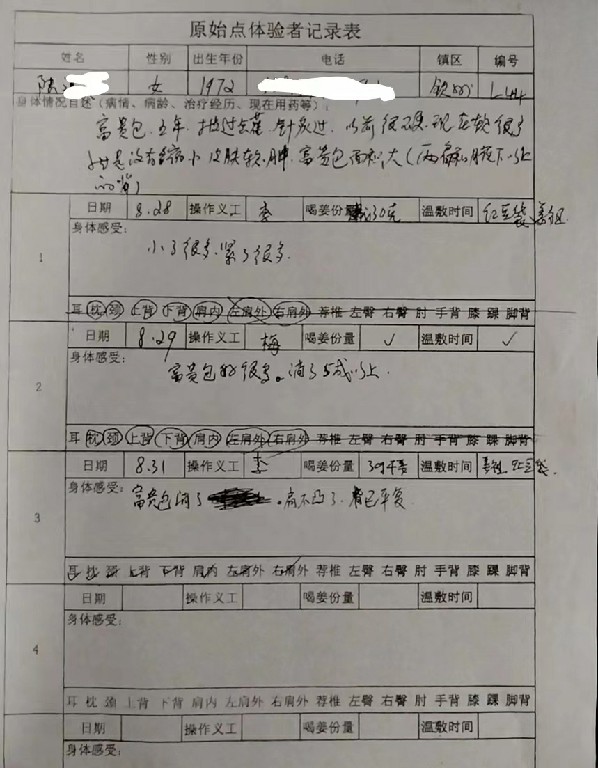 原始点体验者记录表
姓名 性别 出生年份 电话 镇区 编号
陆 女 1972
身体情况自述（病情、病龄、治疗经历、现在用药等）：
富贵包 五年 针灸过 以前很硬 现在软很了
皮肤 肿 富贵包面积大（两侧 腋下以上
日期 8.28 操作义工 李 喝姜份量 30克 温敷时间 红豆袋
1
身体感受：
小了很多 紧了很多
耳 枕 颈 上背 下背 肩内 左肩外 右肩外 荐椎 左臀 右臀 肘 手背 膝 踝 脚背
日期 8.29 操作义工 梅 喝姜份量 ✓ 温敷时间 ✓
2
身体感受：
富贵包好很多。消了5成以上.
耳 枕 颈 上背 下背 肩内 左肩外 右肩外 荐椎 左臀 右臀 肘 手背 膝 踝 脚背
日期 8.31 操作义工 喝姜份量 30 温敷时间 红豆袋
3
身体感受：
富贵包消了 。肩不凸了. 平复
耳 枕 颈 上背 下背 肩内 左肩外 右肩外 荐椎 左臀 右臀 肘 手背 膝 踝 脚背
日期 操作义工 喝姜份量 温敷时间
4
身体感受：
耳 枕 颈 上背 下背 肩内 左肩外 右肩外 荐椎 左臀 右臀 肘 手背 膝 踝 脚背
日期 操作义工 喝姜份量 温敷时间
身体感受：